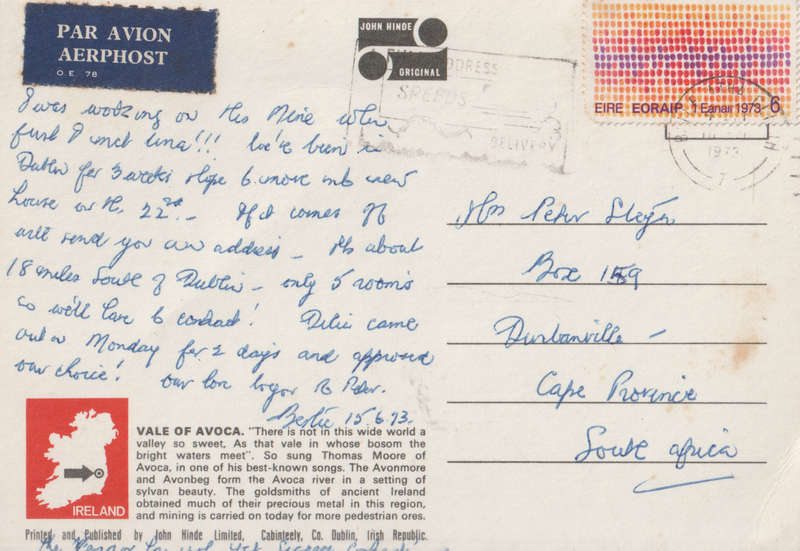 PAR AVION
AERPHOST
O.E. 78
JOHN HINDE
ORIGINAL
ADDRESS
SPEEDS
DELIVERY
EIRE EORAIP 1 Eanair 1973 6
1973
7
I was working on this Mine when
first I met Lena!!! We've been in
Dublin for 3 weeks Hope to move into new
house on the 22nd - If it comes off
will send you our address - its about
18 miles South of Dublin - only 5 rooms
so we'll have to contract! came
out on Monday for 2 days and approved
our choice! our love to Peter.
Bertie 15.6.73.
Mrs Peter Steyn
Box 159
Durbanville -
Cape Province
South Africa
VALE OF AVOCA. "There is not in this wide world a
valley so sweet, As that vale in whose bosom the
bright waters meet". So sung Thomas Moore of
Avoca, in one of his best-known songs. The Avonmore
and Avonbeg form the Avoca river in a setting of
sylvan beauty. The goldsmiths of ancient Ireland
obtained much of their precious metal in this region,
and mining is carried on today for more pedestrian ores.
IRELAND
Printed and Published by John Hinde Limited, Cabinteely, Co. Dublin, Irish Republic.